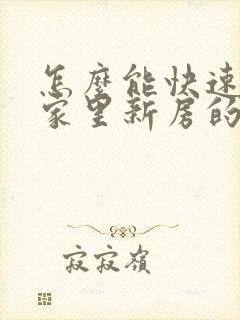 怎麼能快速
家里新房的
寂寂嶺